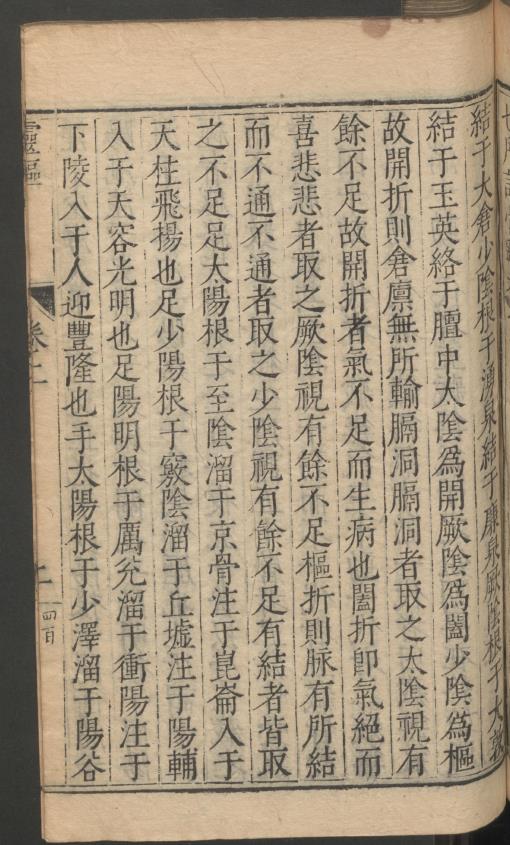 結于大倉少陰根于湧泉結于廉泉厥陰根于大敦
結于玉英絡于膻中太陰為開厥陰為闔少陰為樞
故開折則倉廩無所輸膈洞膈洞者取之太陰視有
餘不足故開折者氣不足而生病也闔折即氣絕而
喜悲悲者取之厥陰視有餘不足樞折則脉有所結
而不通不通者取之少陰視有餘不足有結者皆取
之不足足太陽根于至陰溜于京骨注于崑崙入于
天柱飛揚也足少陽根于竅陰溜于丘墟注于陽輔
入于天容光明也足陽明根于厲兊溜于衝陽注于
下陵入于人迎豐隆也手太陽根于少澤溜于陽谷
靈樞 卷二